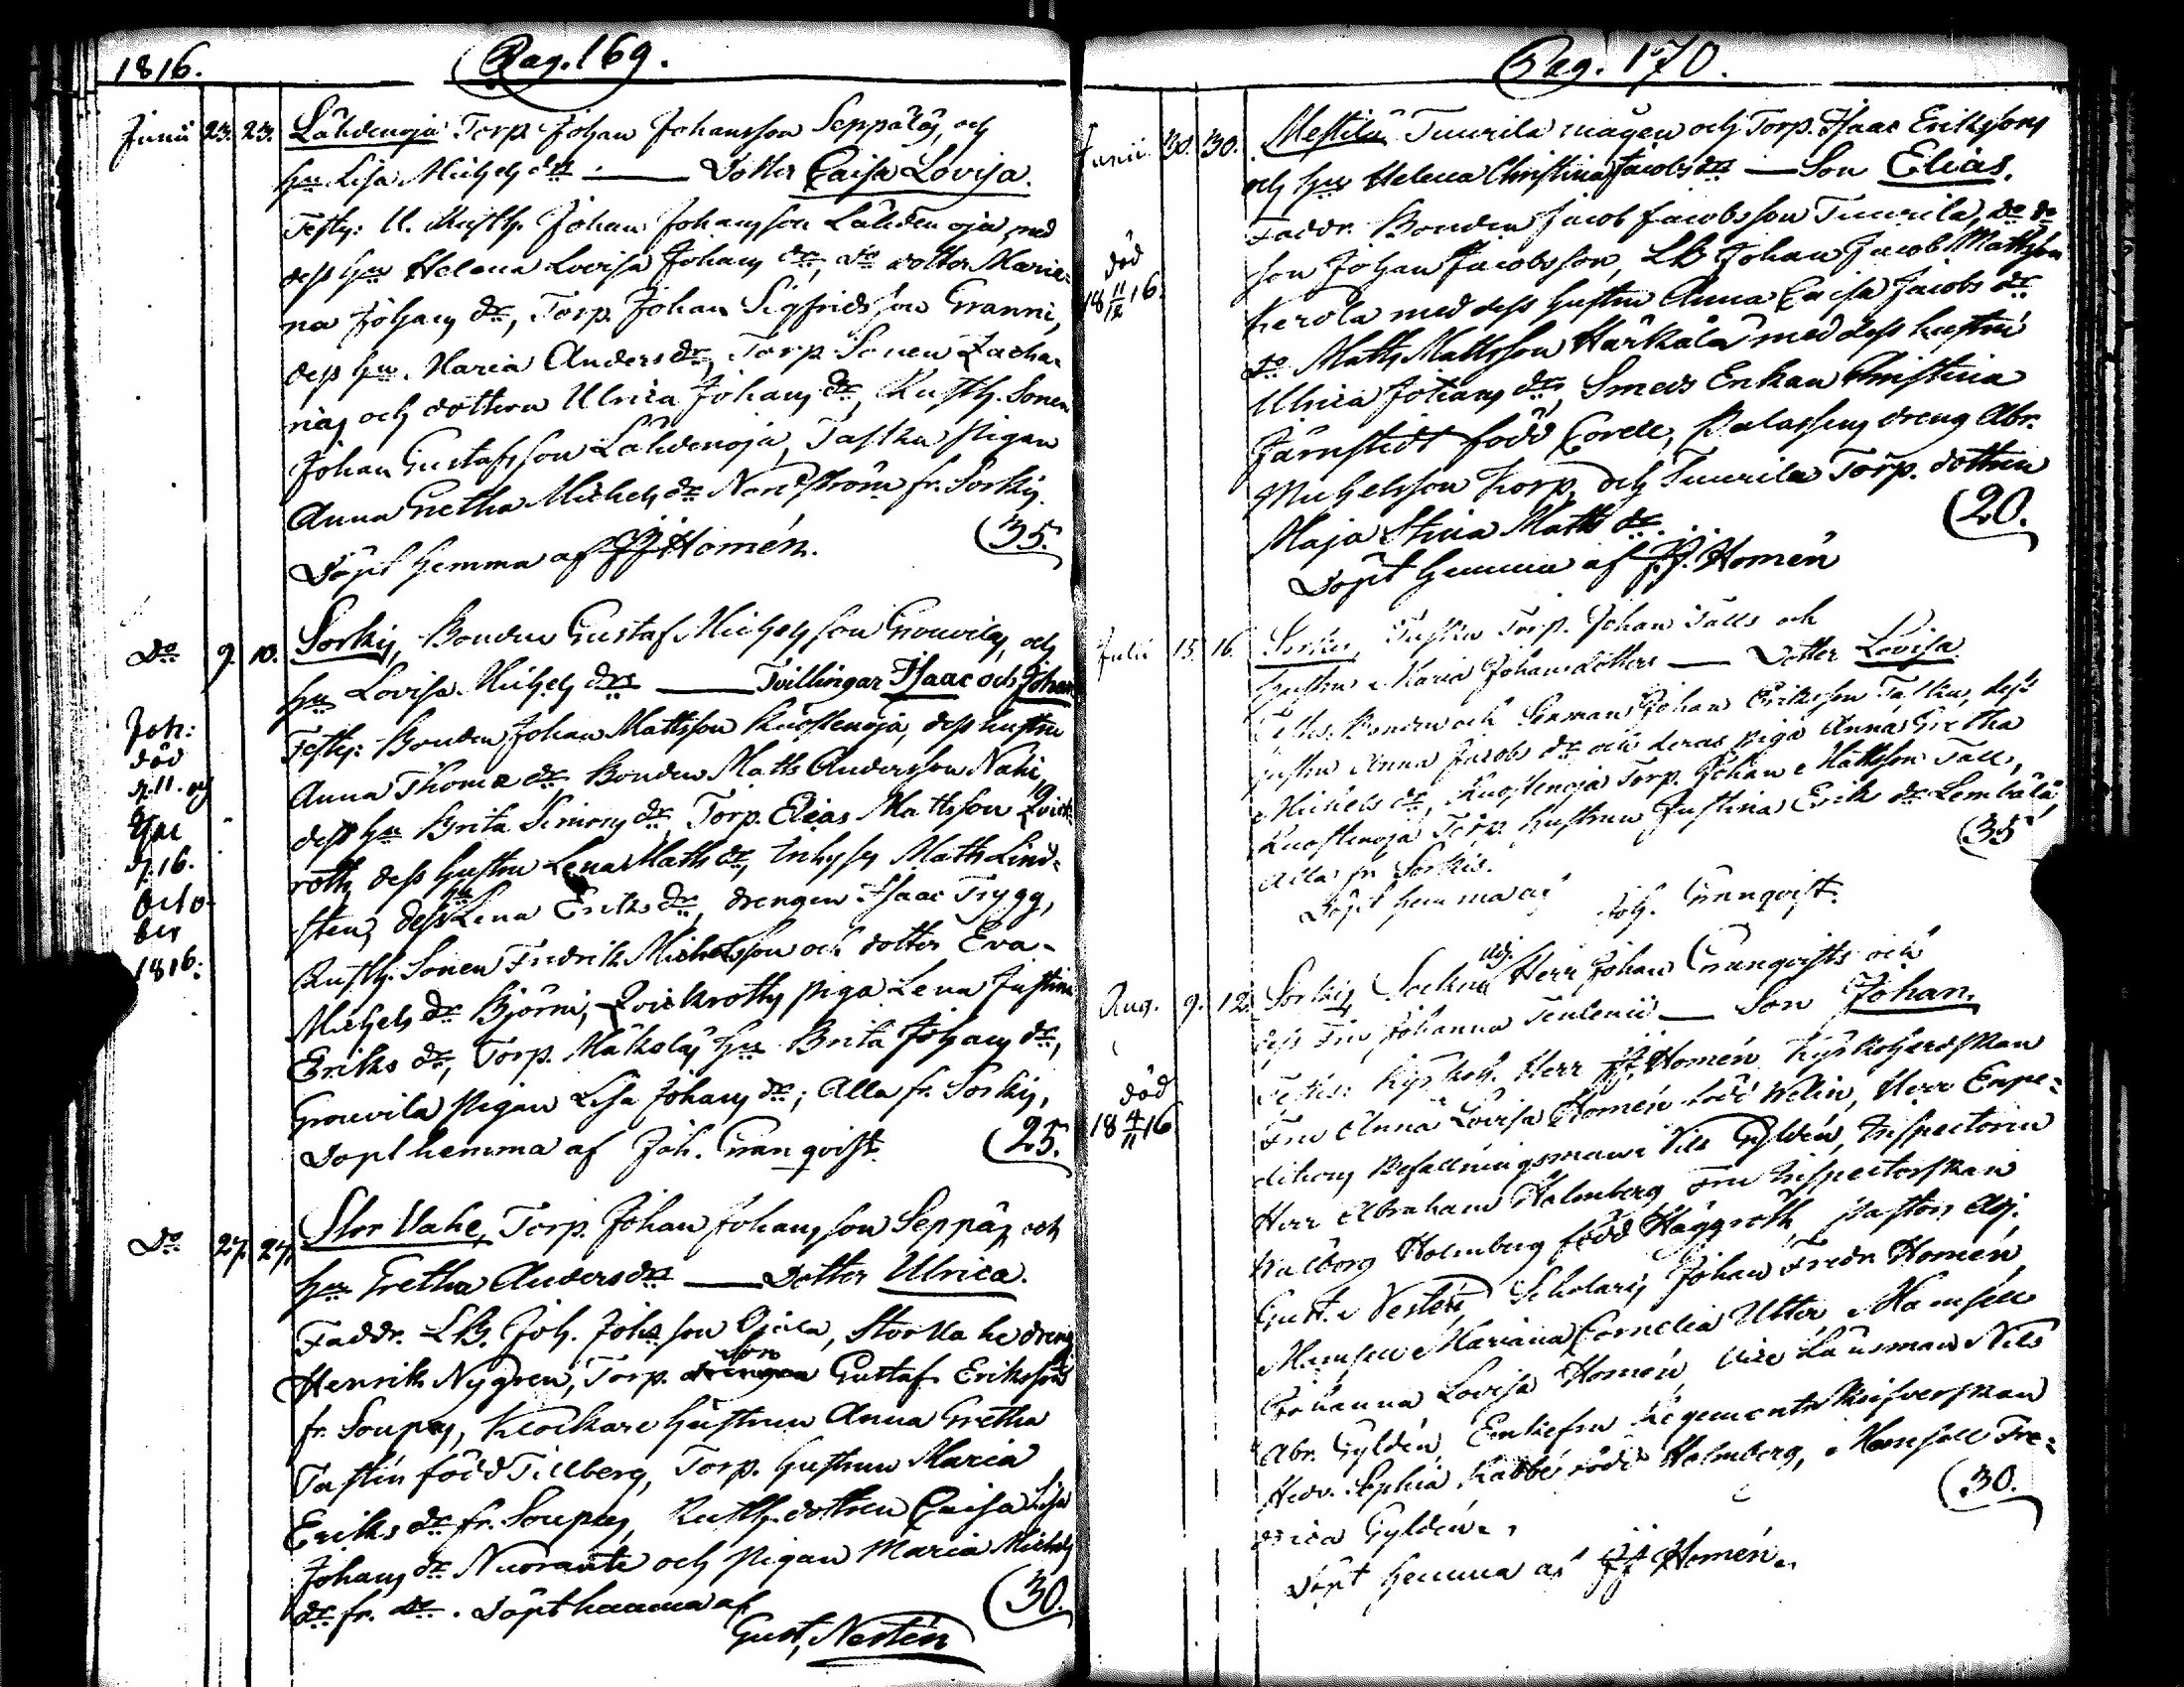 1816.
Pag. 169.
Junii 23. 23. Lähdenoja Torp. Johan Johansson Seppäläs, och
hu. Lisa Michels drs — Dotter Caisa Lovisa.
Testes: U. Rusth. Johan Johansson Lähdenoja, med
dess hu Helena Lovisa Johans dr, do dotter Maria-
na Johans dr, Torp. Johan Sigfridsson Granni,
dess hu. Maria Anders dr, Torp. Sonen Zacha-
rias och dottren Ulrica Johans dr, Rusth. Sonen
Johan Gustafsson Lähdenoja, Tasku pigan
Anna Gretha Michels dr Nordström fr. Sorkis.
Döpt hemma af JJ Homén.
(35.
Do 9. 10. Sorkis, Bonden Gustaf Michelsson Grouvilas, och
hu Lovisa Michels drs — Tvillingar Isaac och Johan
Testes: Bonden Johan Mattsson Kuostenoja, dess hustru
Anna Thomæ dr, Bonden Matts Andersson Nahi,
dess hu Brita Simons dr, Torp. Elias Mattsson Qvick-
roth, dess hustru Lena Matts dr, Inhyses Matts Lind-
sten, dess hu Lena Eriks dr, drengen Isaac Trygg,
Rusth. Sonen Fredrik Michelsson och dotter Eva
Michels dr Björni, Qvickroths piga Lena Justina
Eriks dr, Torp. Mäkeläs hu Brita Johans dr,
Grouvila pigan Lisa Johans dr; Alla fr. Sorkis,
Döpt hemma af Joh. Granqvist.
(25.
Joh:
död
d. 11. och
Isac
d. 16.
Octo-
ber
1816.
Do 27. 27. Stor Vahe, Torp. Johan Johansson Seppäs och
hu Gretha Anders drs — Dotter Ulrica.
Faddr. LB. Joh. Johsson Ojala, Stor Vahe dreng
Henrik Nygren, Torp. son Gustaf Eriksson
fr. Soupas, Klockare hustrun Anna Gretha
Tastin född Tillberg, Torp. hustrun Maria
Eriks dr fr. Soupas, Rusth. dottren Caisa Lisa
Johans dr Nuorante och pigan Maria Michels
dr fr. do. Döpt hemma af
(30.
Gust. Nestén
Pag. 170.
Junii. 30. 30. Mestilä Tuurila mågen och Torp. Isaac Erikssons
och hus Helena Christina Jacobs drs — Son Elias.
Faddr. Bonden Jacob Jacobsson Tuurila, do do
son Johan Jacobsson, LB Johan Jacob Mattsson
Kerola med dess hustru Anna Caisa Jacobs dr
do Matts Mattsson Härkälä med dess hustru
Ulrica Johans dr, Smeds Enkan Christina
Järnstedt född Corell, dreng Abr.
Michelsson Korp, och Tuurila Torp. dottren
Maja Stina Matts dr.
Döpt hemma af J.J. Homén
(20.
död
18 11/12 16.
Julii 15. 16. Sorkis, Tasku Torp. Johan Talls och
hustru Maria Johansdotters — Dotter Lovisa.
Testes: Bonden och Sexman Johan Eriksson Tasku, dess
hustru Anna Jacobs dr och deras piga Anna Gretha
Michels dr, Kuostenoja Torp. Johan Mattsson Tall,
Kuostenoja Torp. hustrun Justina Eriks dr Lembälä,
Alla fr. Sorkis.
(35
Döpt hemma af Joh. Granqvist.
Aug. 9. 12. Sorkis, Sockne adj. Herr Johan Granqvists och
dess Fru Johanna Tenlenii — Son Johan.
Testes: Kyrkoh. Herr JJ. Homén, Kyrkoherdskan
Fru Anna Lovisa Homén född Welin, Herr Expe-
ditions Befallningsman Nils Gyldén, Inspectoren
Herr Abraham Holmberg, Fru Inspectorskan
Walborg Holmberg född Häggroth, Pastors Adj.
Gust. Nestén, Scholaris Johan Fredr. Homén,
Mamsell Mariana Cornelia Utter, Mamsell
Johanna Lovisa Homén, Vice Länsman Nils
Abr. Gyldén, Enkefru Regements Skrifverskan
Hedv. Sophia Rabbe född Holmberg, Mamsell Fre-
drica Gyldén.
(30.
Döpt hemma af JJ Homén.
död
18 4/11 16